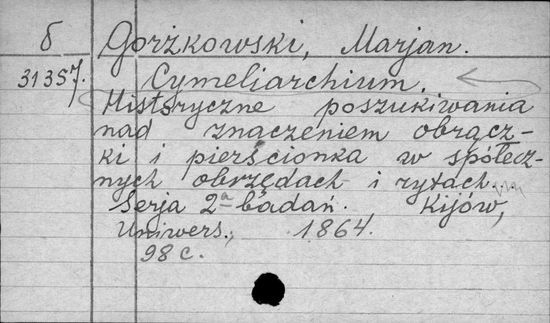 б Gorżkowski, Marjan.
31357. Cymeliarchium.
Historyczne poszukiwania
nad znaczeniem obrącz-
ki i pierścionka w społecz-
nych obrzędach i rytach.
Serja 2ª badań. Kijów,
Uniwers., 1864.
98 c.